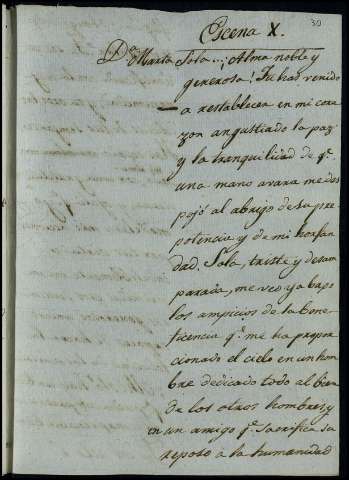 30
Escena X.
D.ª Marta Sola...¡Alma noble y
generosa! Tu has venido
a restablecer en mi cora
zon angustiado la paz
y la tranquilidad de q.e
una mano avara me des
pojó al abrigo de su pre
potencia y de mi horfan
dad. Sola, triste y desam
parada, me veo ya bajo
los auspicios de la bene
ficencia q.e me ha propor
cionado el cielo en un hom
bre dedicado todo al bien
de los otros hombres, y
en un amigo q.e sacrifica su
reposo à la humanidad